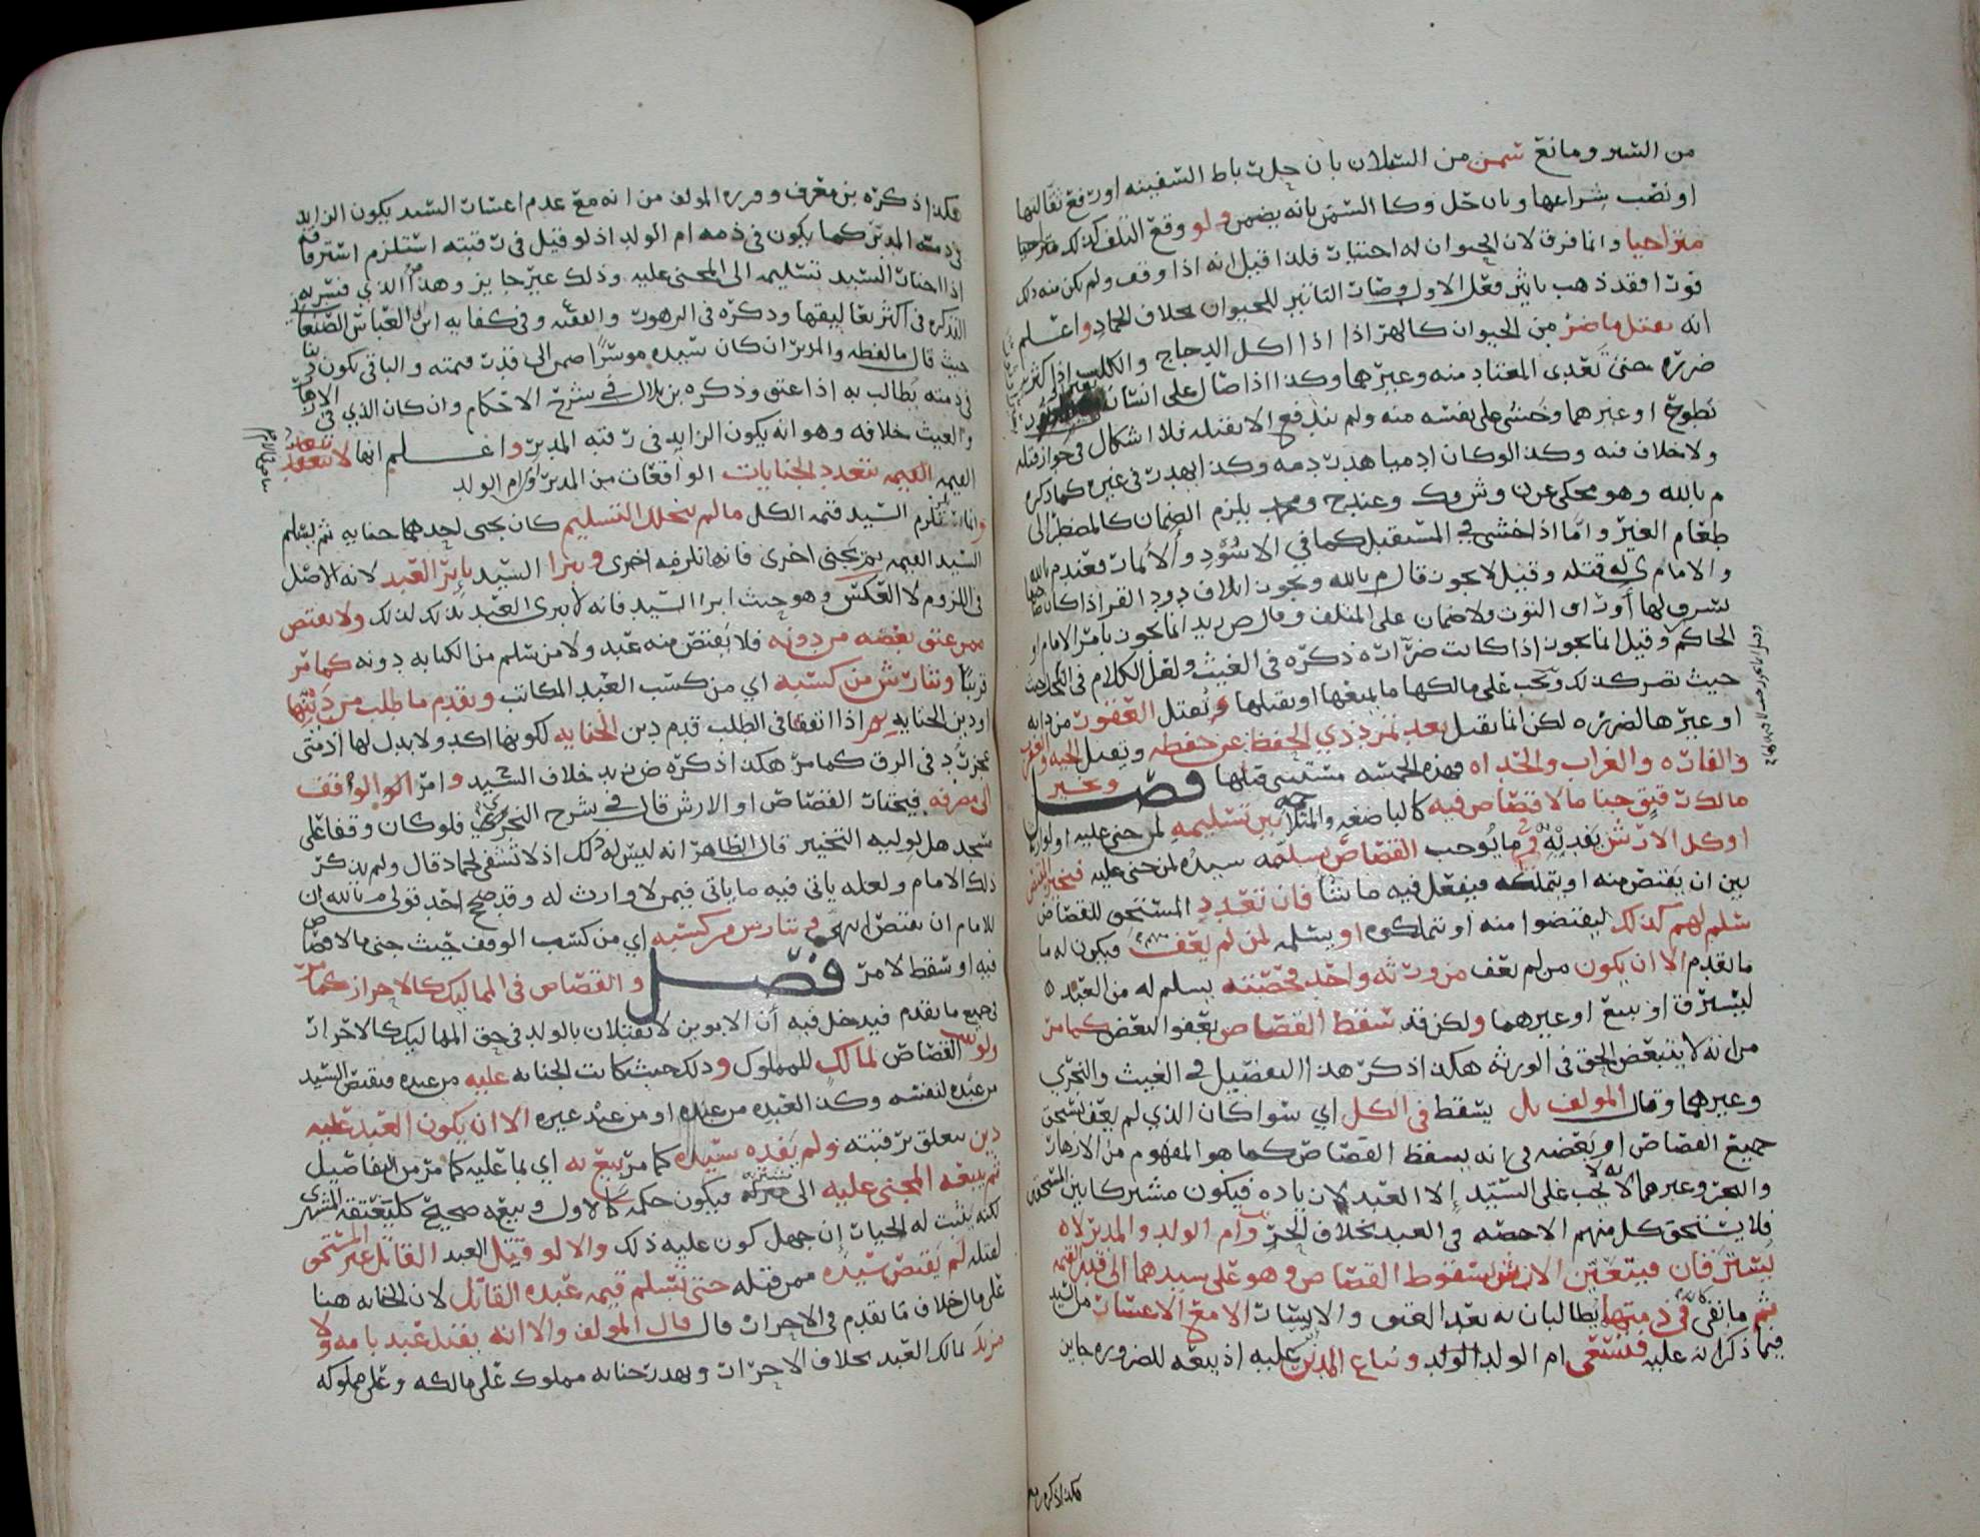 من السير ومانع سمن من السيلان بان حل رباط السفينه او رفع ثقالتها
او نصب شراعها وبان حل وكا السمن بانه يضمن ولو وقع التلف كذلك متراخيا
متراخيا وانما فرق لان الحيوان له اختيار فلذا قيل انه اذا وقف ولم يكن منه ذلك
فورا فقد ذهب تاثير فعل الاول وصار التاثير للحيوان بخلاف الجماد واعلم
انه يقتل ما ضر من الحيوان كالهر اذا اكل الدجاج والكلب اذا كثر
ضرره حتى تعدى المعتاد منه وغيرهما وكذا اذا صال على انسان
نطوح او غيرهما وخشي على نفسه منه ولم يندفع الا بقتله فلا اشكال في جواز قتله
ولا خلاف فيه وكذا لو كان ادميا هدر دمه وكذا يهدر في غيره كما ذكره
م بالله وهو محكي عن ن وش وك وعند ح ومحمد يلزم الضمان كالمضطر الى
طعام الغير واما اذا خشي في المستقبل كما في الاسود والانمار فعند م بالله
والامام ي له قتله وقيل لا يجوز قال م بالله ويجوز اتلاف دود القز اذا كان صاحبها
يسرق لها اوراق التوت ولا ضمان على المتلف وقال ص زيد انما يجوز بامر الامام او
الحاكم وقيل انما يجوز اذا كانت ضراره ذكره في الغيث ولعل الكلام في النحل
حيث تضر كذلك ويجب على مالكها ما يمنعها او يقتلها ويقتل العقور من دابه
او غيرها لضرره لكن انما يقتل بعد تمرد ذي الحفظ عن حفظه ويقتل الحيه والعقرب
والفاره والغراب والحداه فهذه الخمسه مستثنى قتلها فصل ويخير
مالك رق جنا ما لا قصاص فيه كالباضغه والمتلاحمه بين تسليمه لمن جني عليه او لوارثه
او كل الارش يفديه وما يوجب القصاص يسلمه سيده لمن جني عليه فيخير المقتص
بين ان يقتص منه او يتملكه فيفعل فيه ما شا فان تعدد المستحق للقصاص
سلم لهم كذلك ليقتصوا منه او يتملكوه او يسلمه لمن لم يعف فيكون له ما
ما تقدم الا ان يكون من لم يعف من ورثه واحد فحصته يسلم له من العبد
ليسترق او يبيع او غيرهما ولكن قد سقط القصاص بعفو البعض كما مر
من انه لا يتبعض الحق في الورثه هكذا ذكر هذا التفصيل في الغيث والنجري
وغيرهما وقال المولف بل يسقط في الكل اي سوا كان الذي لم يعف يستحق
جميع القصاص او بعضه في انه يسقط القصاص كما هو المفهوم من الازهار
والبحر وغيرهما لانه لا يجب على السيد الا العبد لا زياده فيكون مشتركا بين المستحقين
فلا يستحق كل منهم الا حصته في العبد بخلاف الحر وام الولد والمدبر لا
يسترقان فيتعين الارش لسقوط القصاص وهو على سيدهما الى قدر القيمه
ثم ما بقي في ذمتهما يطالبان به بعد العتق والايسار الا مع الاعسار من السيد
فيما ذكر انه عليه فتستسعى ام الولد الولد ويباع المدبر عليه اذ بيعه للضروره جايز
هكذا ذكره بن معرف

هكذا ذكره بن معرف وقرره المولف من انه مع عدم اعسار السيد يكون الزايد
في ذمة المدبر كما يكون في ذمه ام الولد اذ لو قيل في رقبته استلزم استرقاقه
اذا اختار السيد تسليمه الى المجني عليه وذلك غير جايز وهذا الذي فسر به
التذكره في اكثر تعاليقها وذكره في الزهور والفقيه وفي كفايه ابن العباس الصنعاني
حيث قال ما لفظه والمدبر ان كان سيده موسرا ضمن الى قدر قيمته والباقي يكون دينا
في ذمته يطالب به اذا عتق وذكره بن بلال في شرح الاحكام وان كان الذي في الازهار
والغيث خلافه وهو انه يكون الزايد في رقبة المدبر واعلم انها لا تتعدد
القيمه القيمه بتعدد الجنايات الواقعات من المدبر وام الولد
وانما تلزم السيد قيمه الكل ما لم يتخلل التسليم كان يجني احدهما جنايه ثم يسلم
السيد القيمه ثم يجني اخرى فانها تلزمه اخرى ويبرا السيد بابرا العبد لانه الاصل
في اللزوم لا العكس وهو حيث ابرا السيد فانه لا يبرى العبد بذلك لذلك ولا يقتص
ممن عتق بعضه من دونه فلا يقتص منه عبد ولا من سلم من الكتابه دونه كما مر
قريبا ويتارش من كسبه اي من كسب العبد المكاتب ويقدم ما طلب من دينها
او دين الجنايه اذا اتفقا في الطلب قدم دين الجنايه لكونها اكد ولا بدل لها اذ متى
عجز رد في الرق كما مر هكذا ذكره ص زيد خلاف السيد وامر الوالواقف
الى مصرفه فيختار القصاص او الارش قال في شرح النجري فلو كان وقفا على
مسجد هل لوليه التخيير قال الظاهر انه ليس له ذلك اذ لا تشفى لجماد قال ولم يذكر
ذلك الامام ولعله ياتي فيه ما ياتي فيمن لا وارث له وقد صح احد قولي م بالله ان
للامام ان يقتص ويتارش من كسبه اي من كسب الوقف حيث جنى ما لا قصاص
فيه او سقط لامر فصل والقصاص في المماليك كالاحرار كما مر
في جميع ما تقدم فيدخل فيه ان الابوين لا يقتلان بالولد في حق المماليك كالاحرار
وليس القصاص لمالك للمملوك وذلك حيث كانت الجنايه عليه من عبده فيقتص السيد
من عبده لنفسه وكذا لعبده من عبده او من عبد غيره الا ان يكون العبد عليه
دين يتعلق برقبته ولم يفده سيده كما مر بيع به اي بما عليه كما مر من التفاصيل
ثم يبيعه المجني عليه الى مشتريه فيكون حكمه كالاول وبيعه صحيح كليعتقه المشتري
لكنه يثبت له الخيار ان جهل كون عليه ذلك والا لو قتل العبد القاتل غير المستحق
لقتله لم يقتص سيده ممن قتله حتى يسلم قيمه عبده القاتل لان الجنايه هنا
على مال خلاف ما تقدم في الاحرار قال قال المولف والا انه يقتل عبد بامه ولا
مزيد لمالك العبد بخلاف الاحرار ويهدر جنايه مملوك على مالكه وعلى مملوكه